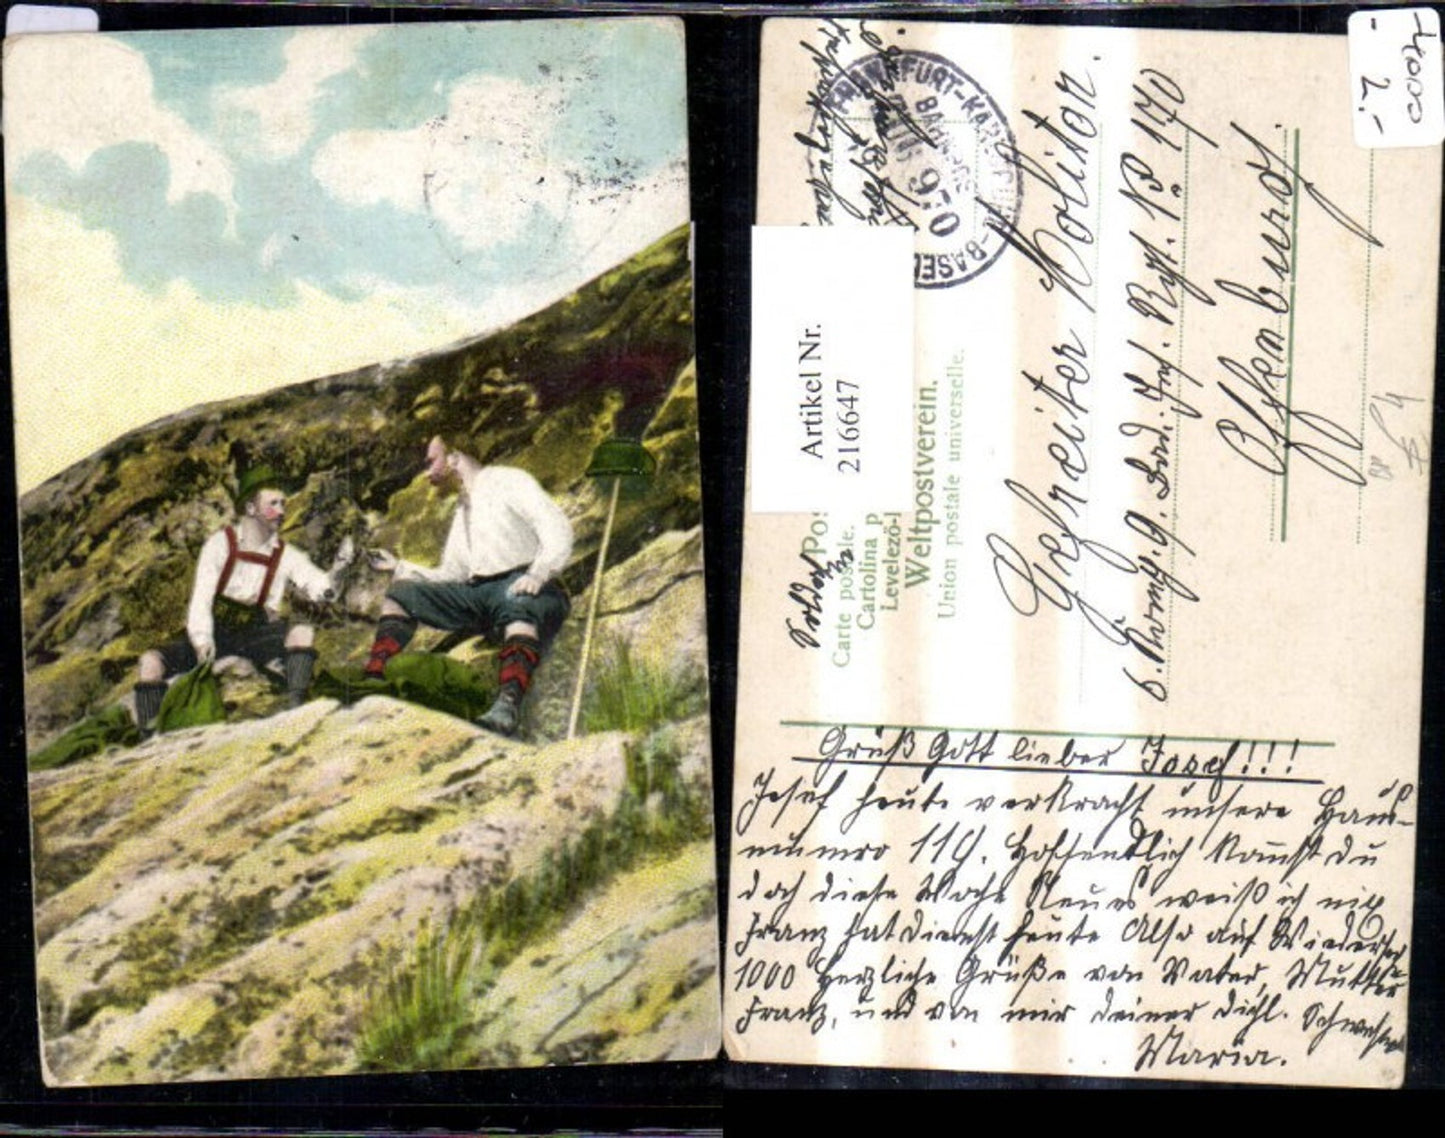 -4000
- 2.-
FRANKFURT-KARLSRUHE-BASEL
BAHNPOST
950
Artikel Nr.
216647
Soldat
Carte postale.
Cartolina p
Levelező-l
Weltpostverein.
Union postale universelle.
Gefreiter Molitor.
6. Komp. 9. Bad. Inf. Rgt. No 170
Offenburg.
Grüß Gott lieber Josef!!!
Josef heute verkracht unsere Haus-
nummer 119. Hoffendlich kannst Du
doch diese Woche Neues weiß ich nix
Franz hat Dienst heute Also auf Wiedersehn
1000 Herzliche Grüße von Vater, Mutter
Franz, und von mir deiner Dichl. Schwester
Maria.